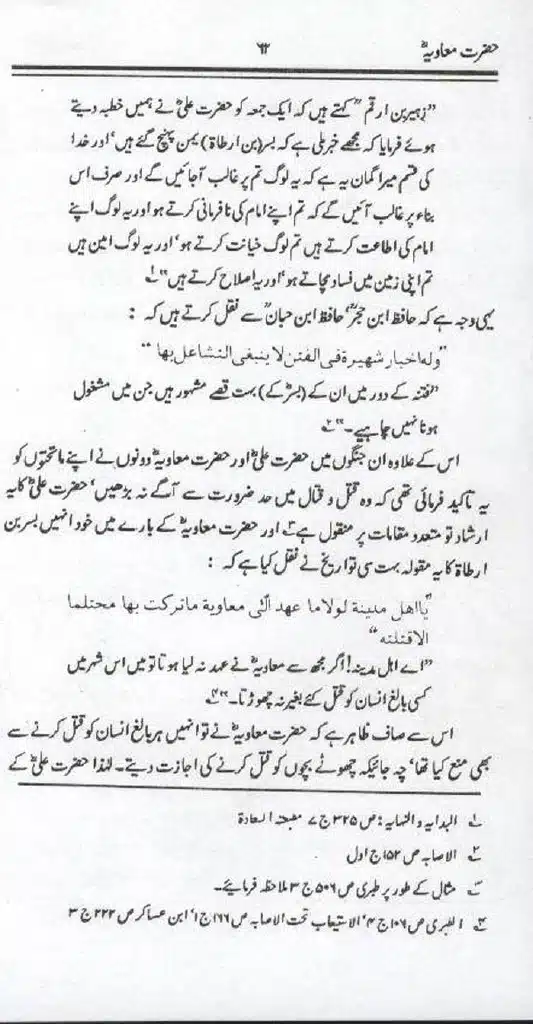 حضرت معاویہؓ ۶۳
”زہیر بن ارقم“ کہتے ہیں کہ ایک جمعہ کو حضرت علیؓ نے ہمیں خطبہ دیتے
ہوئے فرمایا کہ مجھے خبر ملی ہے کہ بسر (بن ارطاة) یمن پہنچ گئے ہیں‘ اور خدا
کی قسم میرا گمان یہ ہے کہ یہ لوگ تم پر غالب آجائیں گے اور صرف اس
بناء پر غالب آئیں گے کہ تم اپنے امام کی نافرمانی کرتے ہو اور یہ لوگ اپنے
امام کی اطاعت کرتے ہیں تم لوگ خیانت کرتے ہو‘ اور یہ لوگ امین ہیں
تم اپنی زمین میں فساد مچاتے ہو‘ اور یہ اصلاح کرتے ہیں“ ۱؎
یہی وجہ ہے کہ حافظ ابن حجرؒ‘ حافظ ابن حبانؒ سے نقل کرتے ہیں کہ :
وله اخبار شهيرة فى الفتن لا ينبغى التشاغل بها “
”فتنہ کے دور میں ان کے (بسرؓ کے) بہت قصے مشہور ہیں جن میں مشغول
ہونا نہیں چاہیے۔“ ۲؎
اس کے علاوہ ان جنگوں میں حضرت علیؓ اور حضرت معاویہؓ دونوں نے اپنے ماتحتوں کو
یہ تاکید فرمائی تھی کہ وہ قتل و قتال میں حد ضرورت سے آگے نہ بڑھیں‘ حضرت علیؓ کا یہ
ارشاد تو متعدد مقامات پر منقول ہے ۳؎ اور حضرت معاویہؓ کے بارے میں خود انہیں بسر بن
ارطاة کا یہ مقولہ بہت سی تواریخ نے نقل کیا ہے کہ :
”یااهل مدينة لولا ما عهد الٰى معاوية ماتركت بها محتلما
الا قتلته“
”اے اہل مدینہ! اگر مجھ سے معاویہؓ نے عہد نہ لیا ہوتا تو میں اس شہر میں
کسی بالغ انسان کو قتل کئے بغیر نہ چھوڑتا۔“ ۴؎
اس سے صاف ظاہر ہے کہ حضرت معاویہؓ نے تو انہیں ہر بالغ انسان کو قتل کرنے سے
بھی منع کیا تھا‘ چہ جائیکہ چھوٹے بچوں کو قتل کرنے کی اجازت دیتے۔ لہٰذا حضرت علیؓ کے
۱؎ البدایہ والنہایہ : ص ۳۲۵ ج ۷ مطبعتہ السعادة
۲؎ الاصابہ ص ۱۵۲ ج اول
۳؎ مثال کے طور پر طبری ص ۵۰۶ ج ۳ ملاحظہ فرمائیے۔
۴؎ الطبری ص ۱۰۶ ج ۴‘ الاستیعاب تحت الاصابہ ص ۱۶۶ ج ۱‘ ابن عساکر ص ۲۲۲ ج ۳